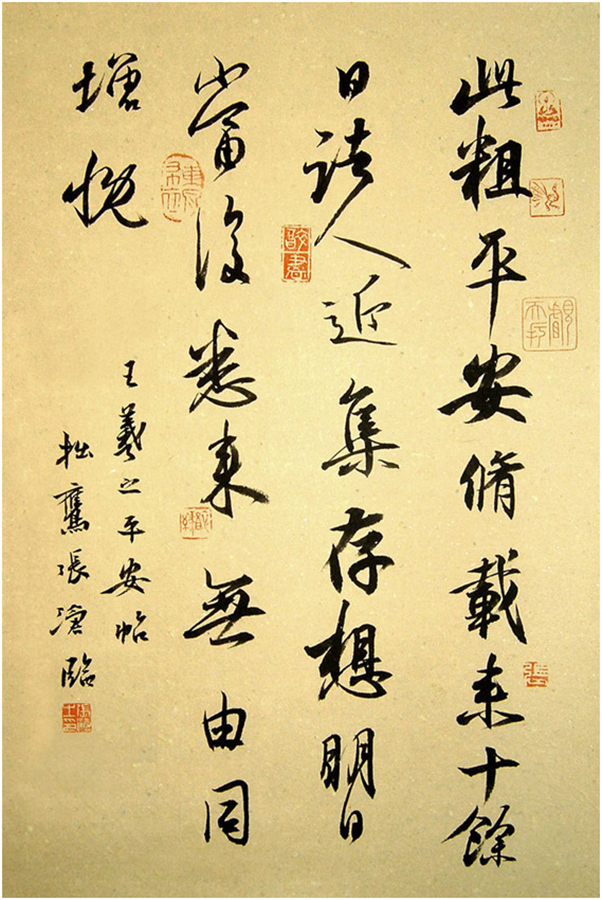 此粗平安脩載来十餘
日諸人近集存想明日
當復悉来無由同
增慨
王羲之平安帖
拙 張滄臨